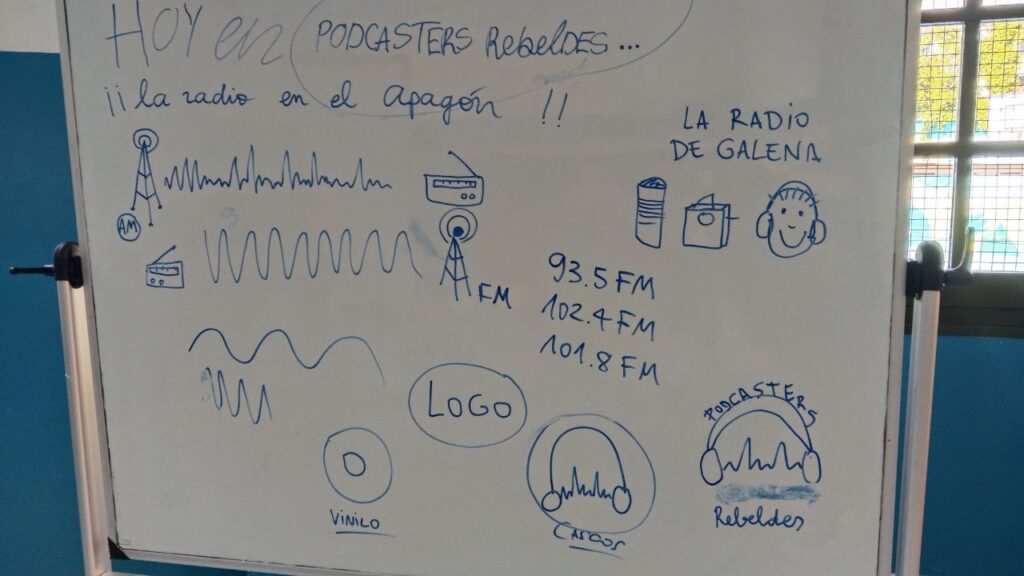 HOY en PODCASTERS Rebeldes...
¡¡la radio en el apagón!!
LA RADIO
DE GALENA
AM
FM
93.5 FM
102.4 FM
101.8 FM
LOGO
PODCASTERS
Rebeldes
VINILO
CASCOS